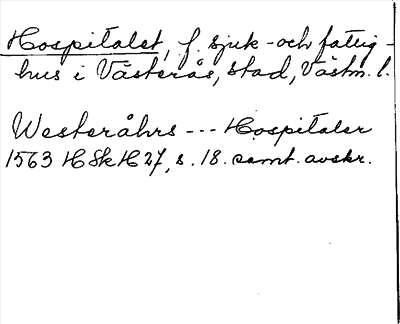 Hospitalet, f. sjuk- och fattig-
hus i Västerås, stad, Västm. l.
Westeråhrs --- Hospitaler
1563 HSkH 27, s. 18. samt. avskr.